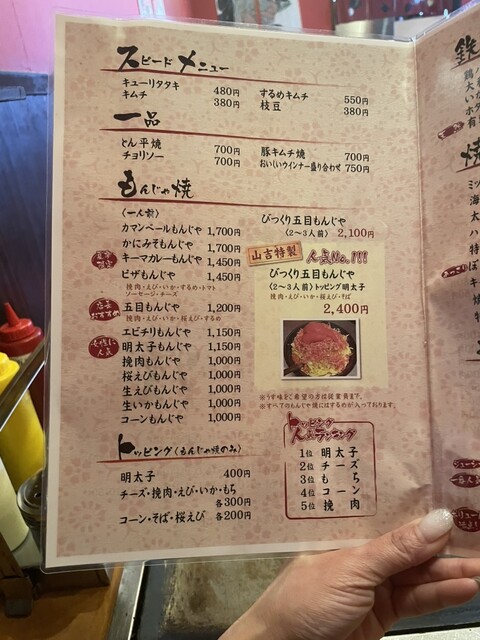 スピードメニュー
キューリタタキ 480円
キムチ 380円
するめキムチ 550円
枝豆 380円
一品
とん平焼 700円
チョリソー 700円
豚キムチ焼 700円
おいしいウインナー盛り合わせ 750円
もんじゃ焼
〈一人前〉
カマンベールもんじゃ 1,700円
かにみそもんじゃ 1,700円
キーマカレーもんじゃ 1,450円
ピザもんじゃ 1,450円
挽肉・えび・いか・するめ・トマト
ソーセージ・チーズ
店長
おすすめ
五目もんじゃ 1,200円
挽肉・えび・いか・桜えび・するめ
エビチリもんじゃ 1,150円
女性に
人気
明太子もんじゃ 1,150円
挽肉もんじゃ 1,000円
桜えびもんじゃ 1,000円
生えびもんじゃ 1,000円
生いかもんじゃ 1,000円
コーンもんじゃ 1,000円
びっくり五目もんじゃ
〈2〜3人前〉 2,100円
山吉特製
人気No.1!!!
びっくり五目もんじゃ
〈2〜3人前〉トッピング明太子
挽肉・えび・いか・桜えび・そば
2,400円
※うす味をご希望の方は従業員まで。
※すべてのもんじゃ焼にはするめが入っております。
トッピング〈もんじゃ焼のみ〉
明太子 400円
チーズ・挽肉・えび・いか・もち
各300円
コーン・そば・桜えび 各200円
トッピング
人気ランキング
1位 明太子
2位 チーズ
3位 もち
4位 コーン
5位 挽肉
鉄
焼